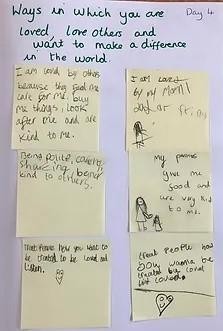 Ways in which you are
Day 4
loved, love others and
want to make a difference
in the world.
I am loved by others
because they feed me
care for me. buy
me things, look
after me and are
kind to me.
I am loved
by my Mom
Being polite, caring,
sharing, being
kind to others.
my
give me
food and
are very kind
to me.
Treat People how you want to
be treated to be loved and
listen.
treat people how
you wanna be
treated by loved